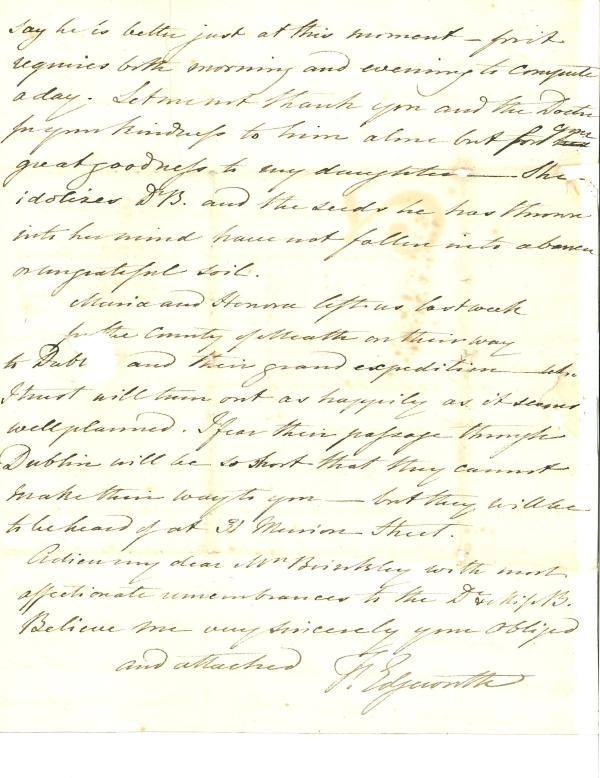 say he is better just at this moment – for it
requires both morning and evening to compute
a day. Let me not thank you and the Doctor
for your kindness to him alone but for your
great goodness to my daughter – She
idolizes Dr B. and the seeds he has thrown
into her mind have not fallen into a barren
or ungrateful soil.
Maria and Honora left us last week
for the County of Meath on their way
to Dubl and their grand expedition – which
I trust will turn out as happily as it seems
well planned. I fear their passage through
Dublin will be so short that they cannot
make their way to you – but they will be
to be heard of at 31 Merrion Street.
Adieu my dear Mrs Brinkley with most
affectionate remembrances to the Dr & Miss B.
Believe me very sincerely your obliged
and attached F. Edgeworth